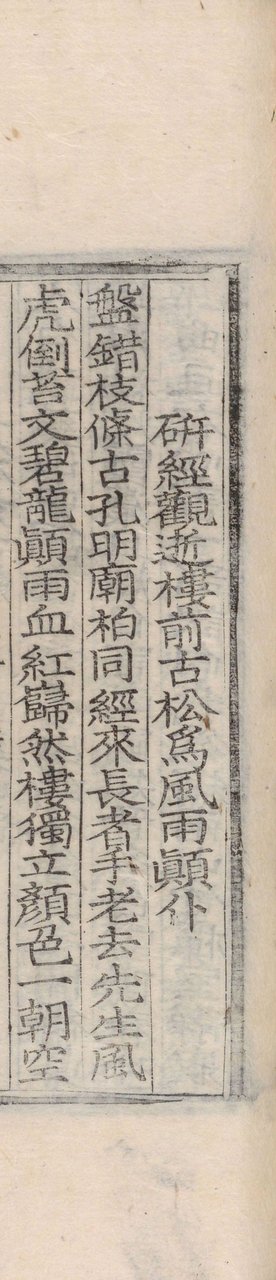 硏經觀逝樓前古松爲風雨顚仆
盤錯枝條古孔明廟柏同經來長者手老去先生風
虎倒苔文碧龍顚雨血紅巋然樓獨立顏色一朝空